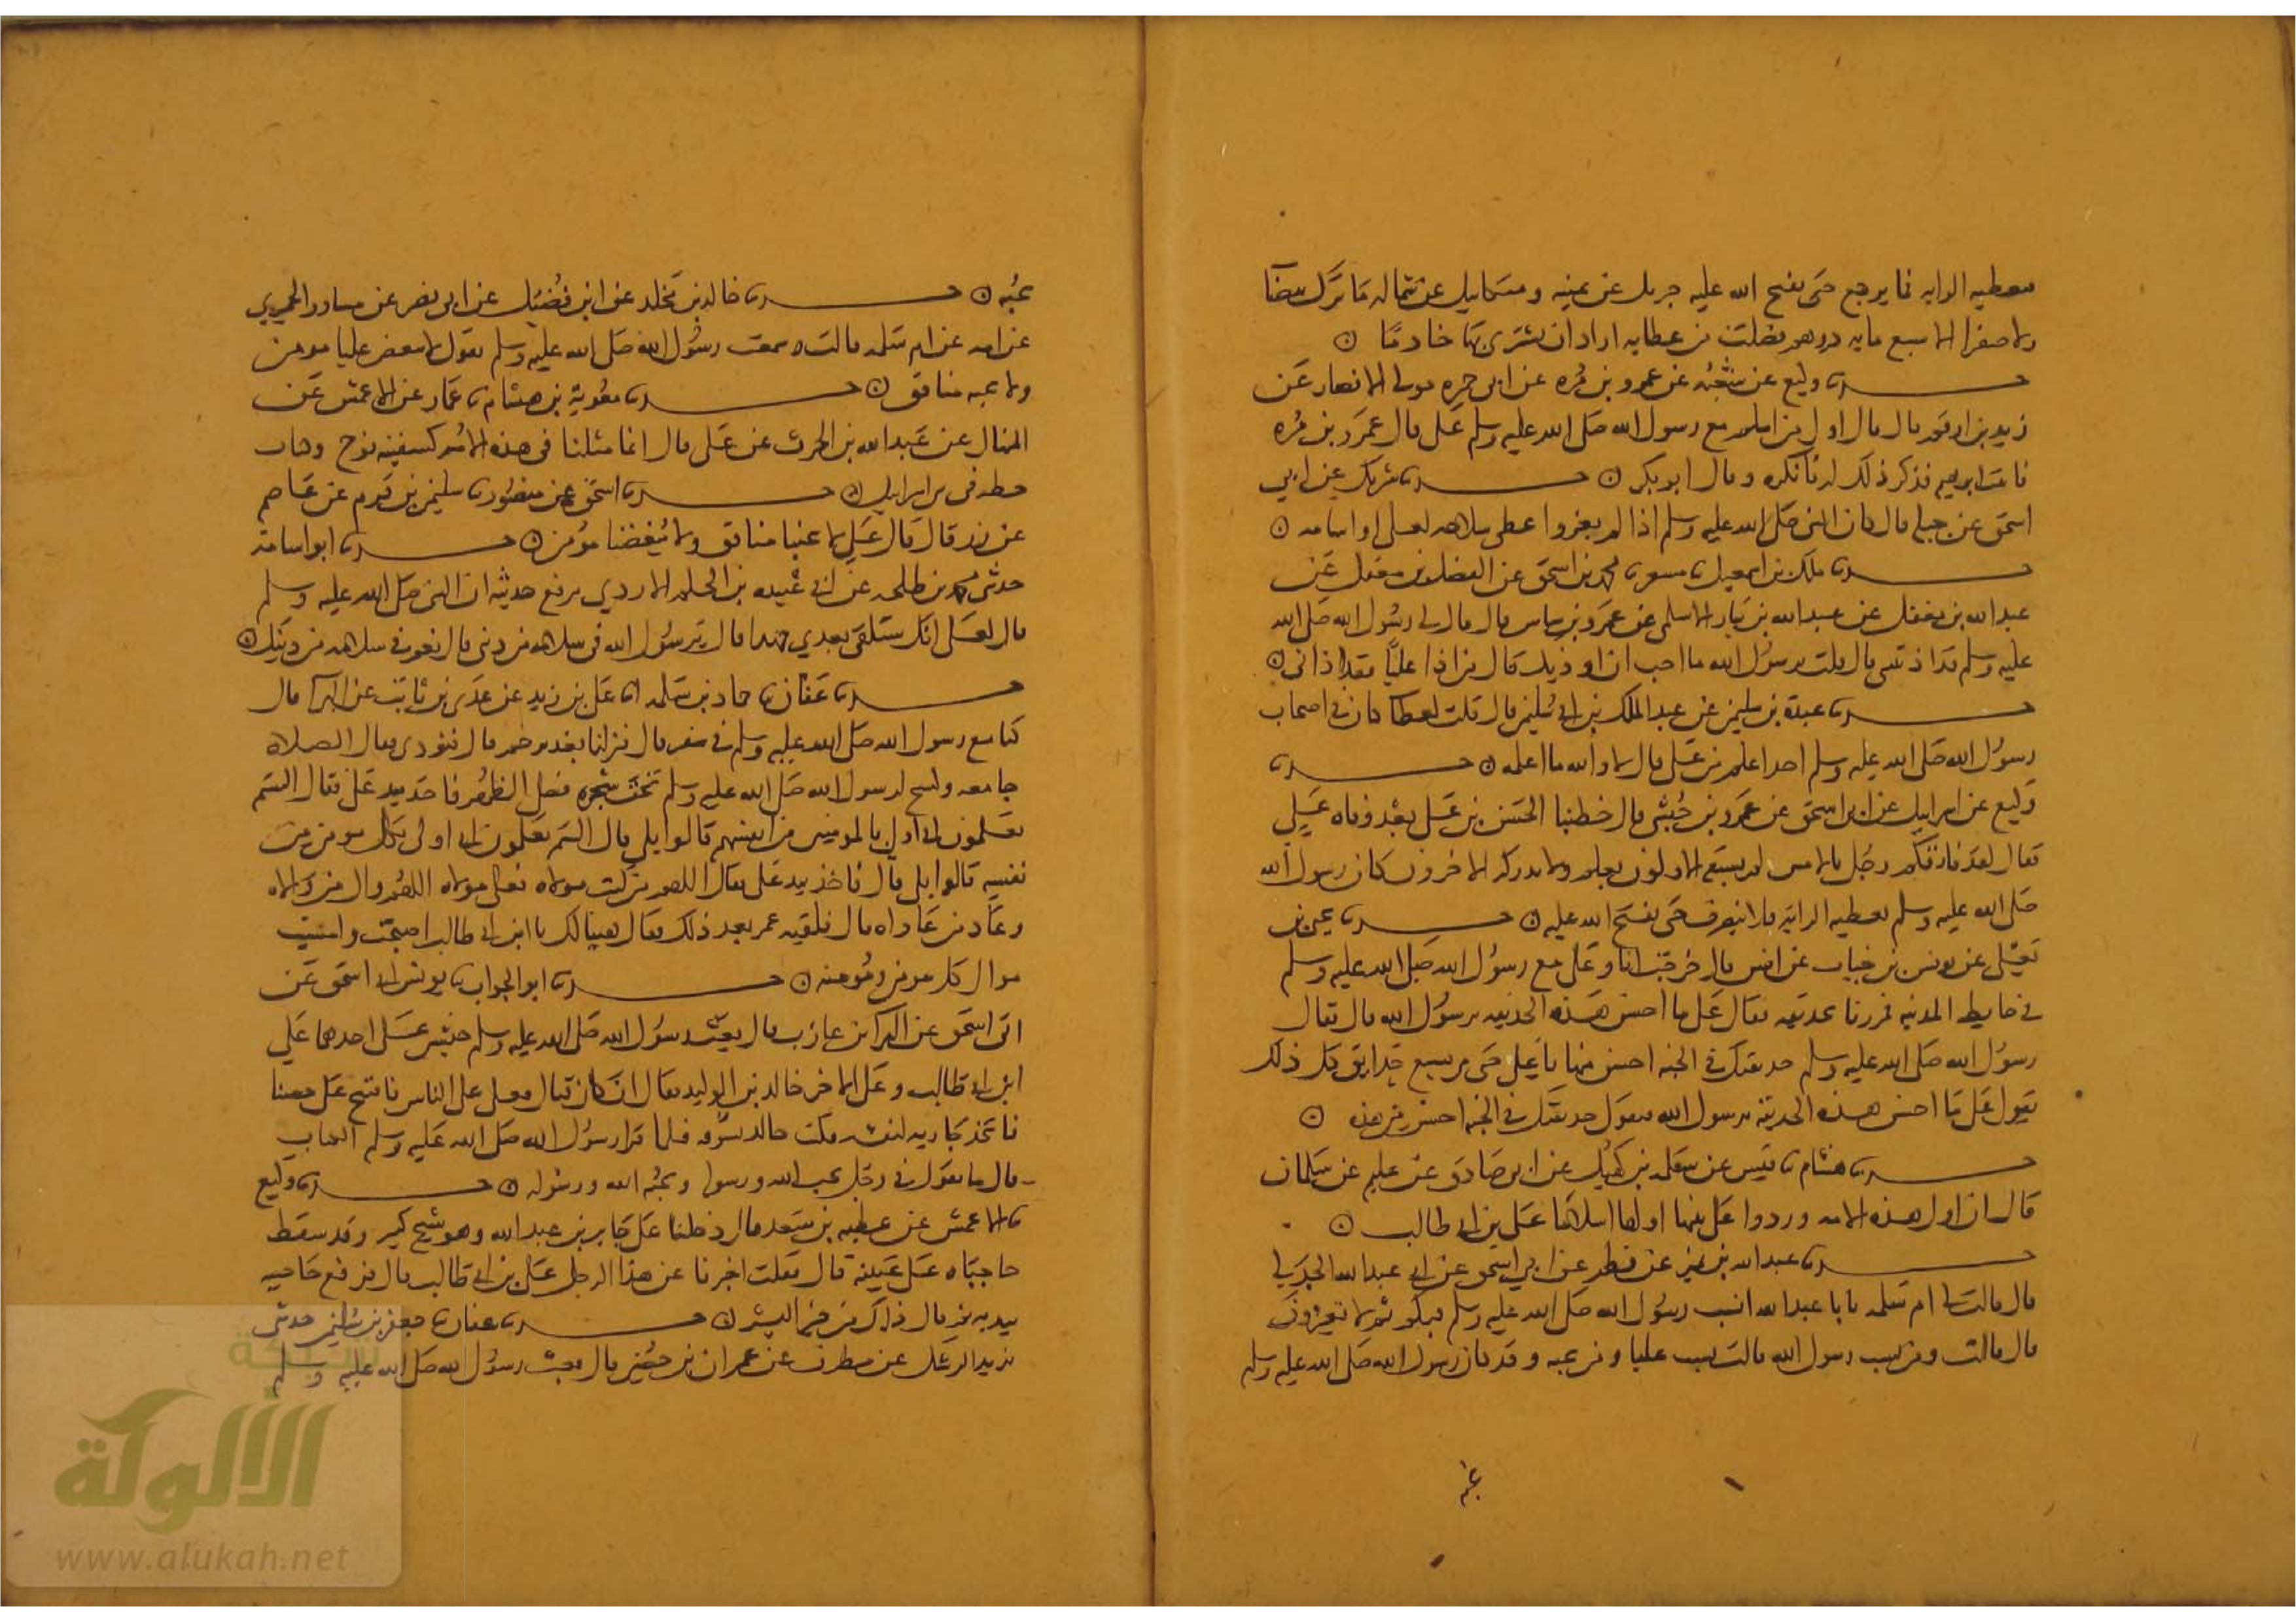 فيعطيه الرايه فما يرجع حتى يفتح الله عليه جبريل عن يمينه وميكاييل عن شماله ما ترك بيضا
ولا صفرا الا سبع مايه درهم فضلت من عطايه اراد ان يشترى بها خادمًا ن
حدثنا وكيع عن شعبه عن عمرو بن مُره عن ابى حمزه مولى الانصار عن
زيد بن ارقم قال قال اول من اسلم مع رسول الله صلى الله عليه وسلم على قال عمرو بن مُره
فاتيت ابرهيم فذكر ذلك له فانكره وقال ابو بكر ن حدثنا شريك عن ابي
اسحق عن جبلة قال كان النبى صلى الله عليه وسلم اذا لم يغزوا عطى سلاحه لعلى او اسامه ن
حدثنا ملك بن اسمعيل نا مسعود نا محمد بن اسحق عن الفضل بن معقل عن
عبد الله بن معقل عن عبد الله بن نيار الاسلمى عن عمرو بن شاس قال قال لى رسُول الله صلى الله
عليه وسلم قد اذيتنى قال قلت يرسول الله ما احب ان اوذيك قال من اذا عليًّا فقد اذانى ن
حدثنا عبدة بن سليمن عن عبد الملك بن ابى سُليمن قال قلت لعطا كان فى اصحاب
رسُول الله صلى الله عليه وسلم احد اعلم من على قال لا والله ما اعلمه ن حدثنا
وكيع عن اسرايل عن ابى اسحق عن عمرو بن حُبشى قال خطبنا الحسن بن على بعد وفاه علي
فقال لقد فارقكم رجُل بالامس لم يسبقه الاولون بعلم ولا يدركه الاخرون كان رسول الله
صلى الله عليه وسلم يعطيه الراية فلا ينصرف حتى يفتح الله عليه ن حدثنا يحيى بن
يعلى عن يونس بن خباب عن انس قال خرجت انا وعلى مع رسول الله صلى الله عليه وسلم
فى حايط المدينه فمررنا بحديقه فقال على ما احسن هذه الحديقه يرسول الله قال فقال
رسول الله صلى الله عليه وسلم حديقتك فى الجنه احسن منها يا على حتى مر بسبع حدايق كل ذلك
يقول على ما احسن هذه الحديقه يرسول الله فيقول حديقتك فى الجنه احسن من هذه ن
حدثنا هشام نا قيس عن سلمه بن كهيل عن ابى صادق عن عليم عن سلمان
قال ان اول هذه الامه ورودا على نبيها اولها اسلامًا على بن ابى طالب ن
حدثنا عبد الله بن نمير عن فطر عن ابي اسحق عن ابى عبد الله الجدلي
قال قالت لى ام سلمه يابا عبد الله ايسب رسول الله صلى الله عليه وسلم فيكم ثم لا تغيرون
قال قالت ومن يسب رسول الله قالت يسب عليا ومن يحبه وقد كان رسول الله صلى الله عليه وسلم
يحبه
يحُبه ن حدثنا خالد بن مخلد عن ابن فُضيل عن ابى نصر عن مساور الحميري
عن امه عن ام سلمه قالت سمعت رسُول الله صلى الله عليه وسلم يقول لا يبغض عليا مومن
ولا يحبه منافق ن حدثنا معوية بن هشام نا عمار عن الاعمش عن
المنهال عن عبد الله بن الحرث عن على قال انما مثلنا فى هذه الامه كسفينه نوح وكباب
حطه فى بنى اسرايل ن حدثنا اسحق بن منصور نا سليمن بن قرم عن عاصم
عن زر قال قال علي لا يحبنا منافق ولا يُبغضنا مؤمن ن حدثنا ابو اسامة
حدثنى محمد بن طلحه عن ابى عُبيده بن الحكم الازدي يرفع حديثه ان النبى صلى الله عليه وسلم
قال لعلى انك ستلقى بعدي جهدا قال يرسُول الله فى سلامه من دينى قال نعم فى سلامه من دينك ن
حدثنا عفان نا حماد بن سلمه انا على بن زيد عن عدى بن ثابت عن البرا قال
كنا مع رسول الله صلى الله عليه وسلم فى سفر قال فنزلنا بغدير خم قال فنودى فقال الصلاه
جامعه وكسح لرسول الله صلى الله عليه وسلم تحت شجره فصلى الظهر فاخذ بيد على فقال الستم
تعلمون انى اولى بالمومنين من انفسهم قالوا بلى قال الستم تعلمون انى اولى بكل مومن من
نفسه قالوا بلى قال فاخذ بيد على فقال اللهم من كنت مولاه فعلى مولاه اللهم وال من والاه
وعاد من عاداه قال فلقيه عمر بعد ذلك فقال هنيا لك يا ابن ابى طالب اصبحت وامسيت
مولى كل مومن ومُومنه ن حدثنا ابو الجواب نا يونس بن ابى اسحق عن
ابى اسحق عن البرا بن عازب قال بعث رسول الله صلى الله عليه وسلم جيشين على احدهما علي
ابن ابى طالب وعلى الاخر خالد بن الوليد فقال ان كان قتال فعلى على الناس فافتتح على حصنا
فاتخذ جاريه لنفسه فكتب خالد يسوه فلما قرا رسول الله صلى الله عليه وسلم الكتاب
قال ما تقول فى رجل يحب الله ورسوله ويحبُه الله ورسُوله ن حدثنا وكيع
نا الاعمش عن عطيه بن سعد قال دخلنا على جابر بن عبد الله وهو شيخ كبير وقد سقط
حاجباه على عينيه قال فقلت اخبرنا عن هذا الرجل على بن ابى طالب قال فرفع حاجبيه
بيديه ثم قال ذاك من خير البشر ن حدثنا عفان نا جعفر بن سليمن حدثنى
يزيد الرشك عن مطرف عن عمران بن حُصين قال بعث رسول الله صلى الله عليه وسلم
شبكة
الألوكة
www.alukah.net